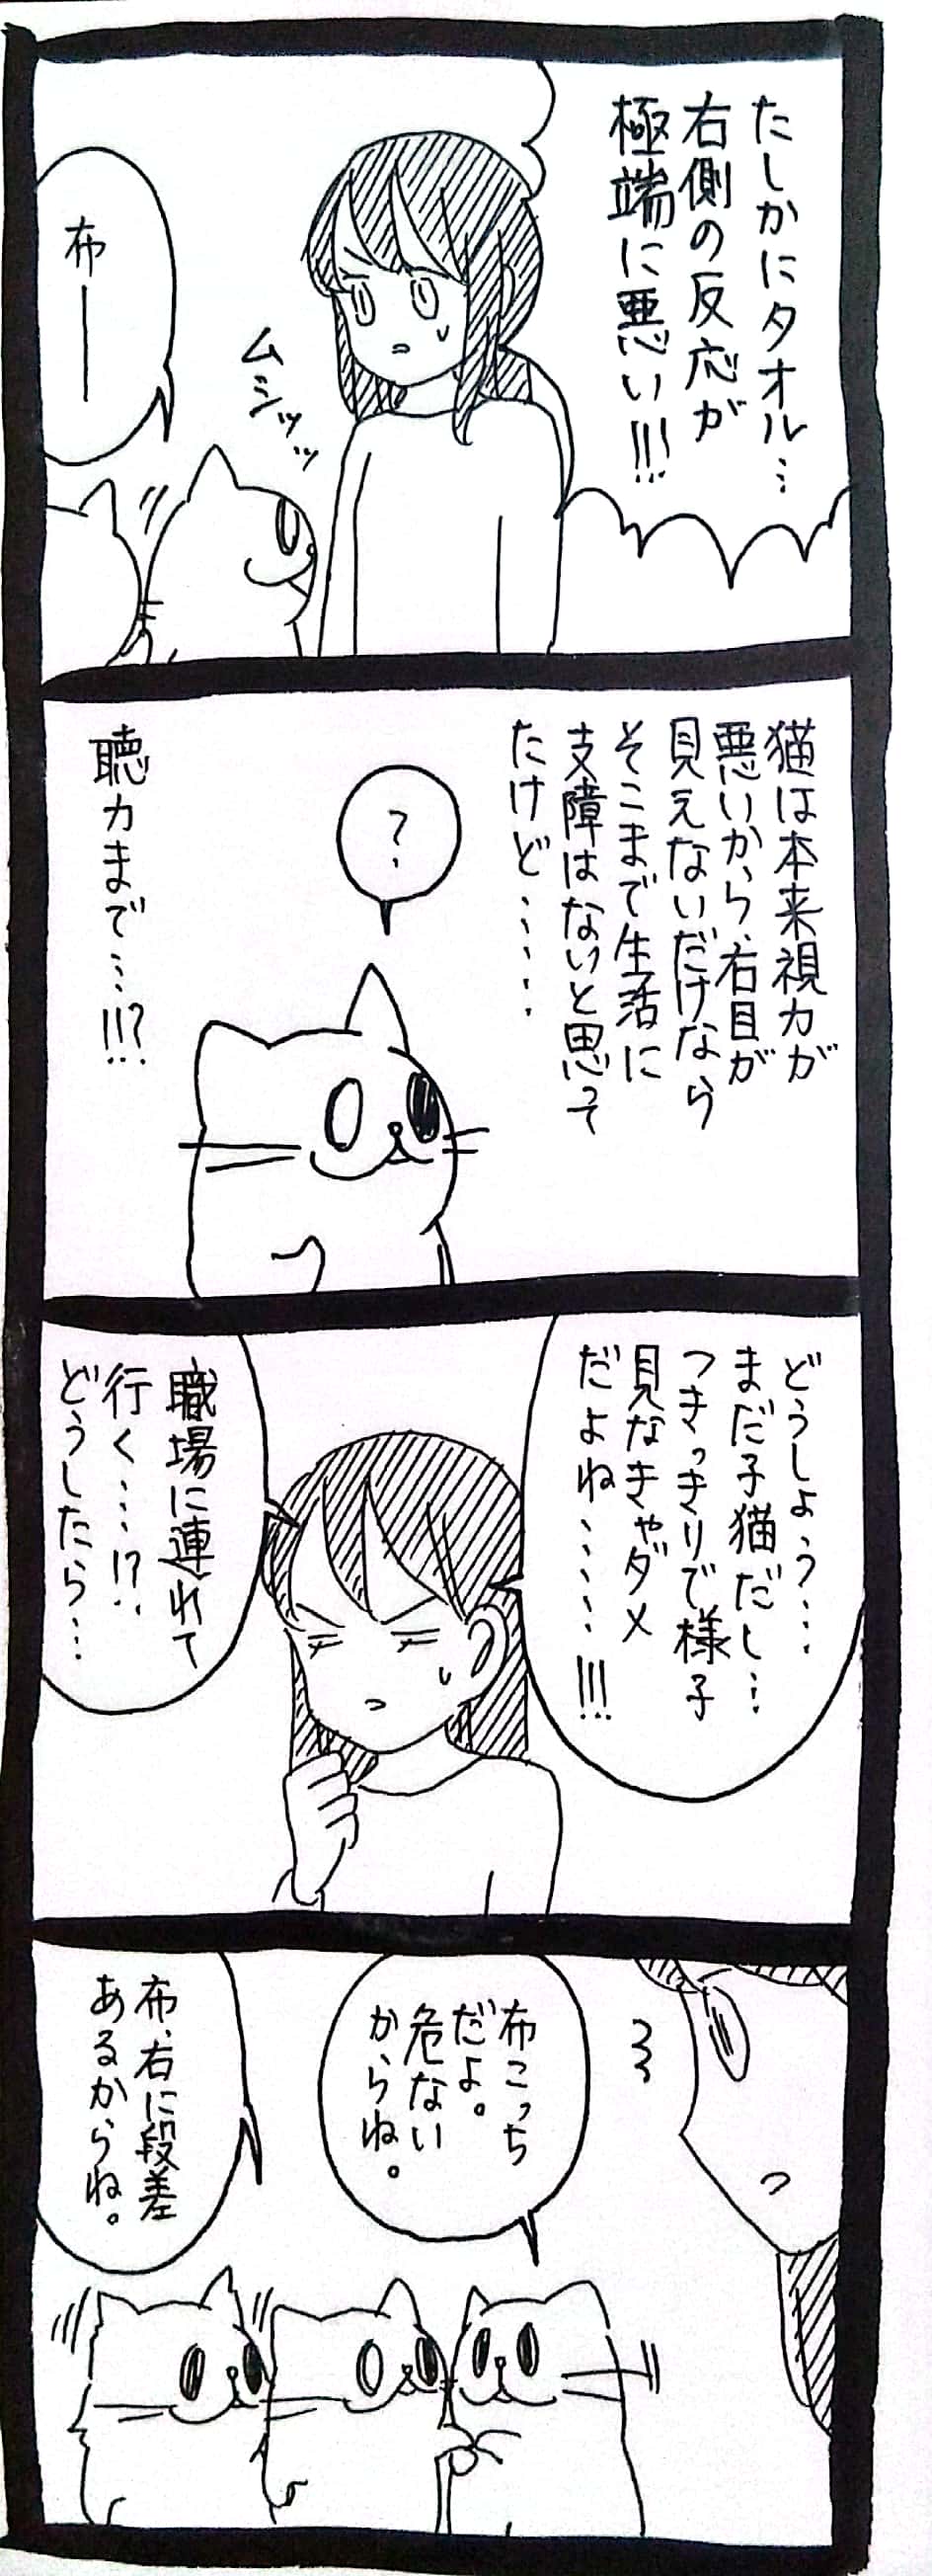 たしかにタオル…
右側の反応が
極端に悪い!!!
ムシッッ
布ー
猫は本来視力が
悪いから、右目が
見えないだけなら
そこまで生活に
支障はないと思って
たけど……
?
聴力まで…!!?
どうしよう?…
まだ子猫だし…
つきっきりで様子
見なきゃダメ
だよね……!!!
職場に連れて
行く…!?
どうしたら…
布こっち
だよ。
危ない
からね。
布、右に段差
あるからね。